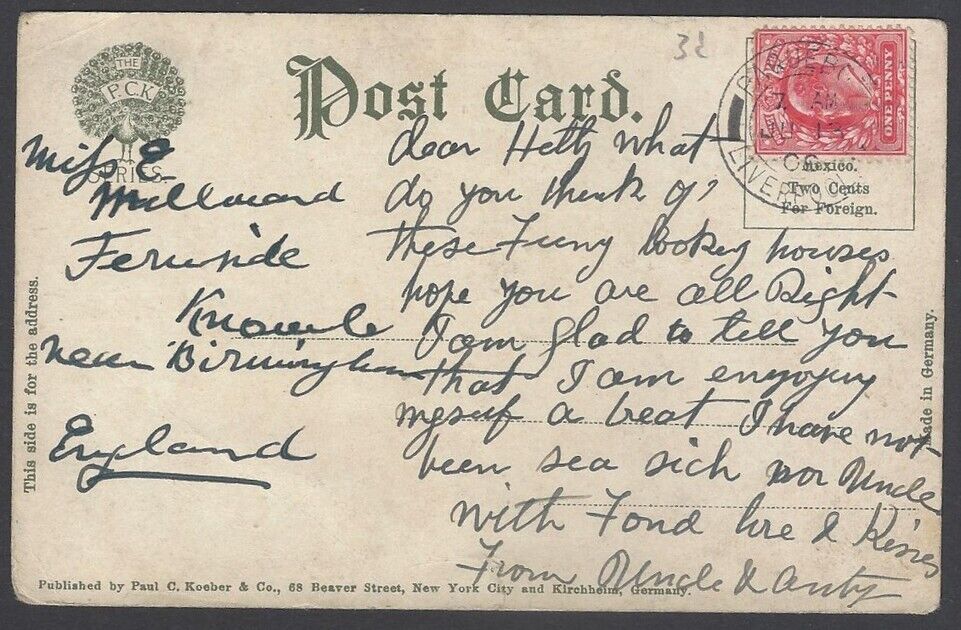 THE
P.C.K.
SERIES.
Post Card.
32
ONE PENNY
AM
Mexico.
Two Cents
For Foreign.
This side is for the address.
Miss E
Millward
Fernside
Knowle
near Birmingham
England
dear Hetty what
do you think of
these Funy looking houses
hope you are all Right
I am glad to tell you
that I am enjoying
myself a treat I have not
been sea sick nor Uncle
with Fond love & Kisses
From Uncle & Aunty
Made in Germany.
Published by Paul C. Koeber & Co., 68 Beaver Street, New York City and Kirchheim, Germany.